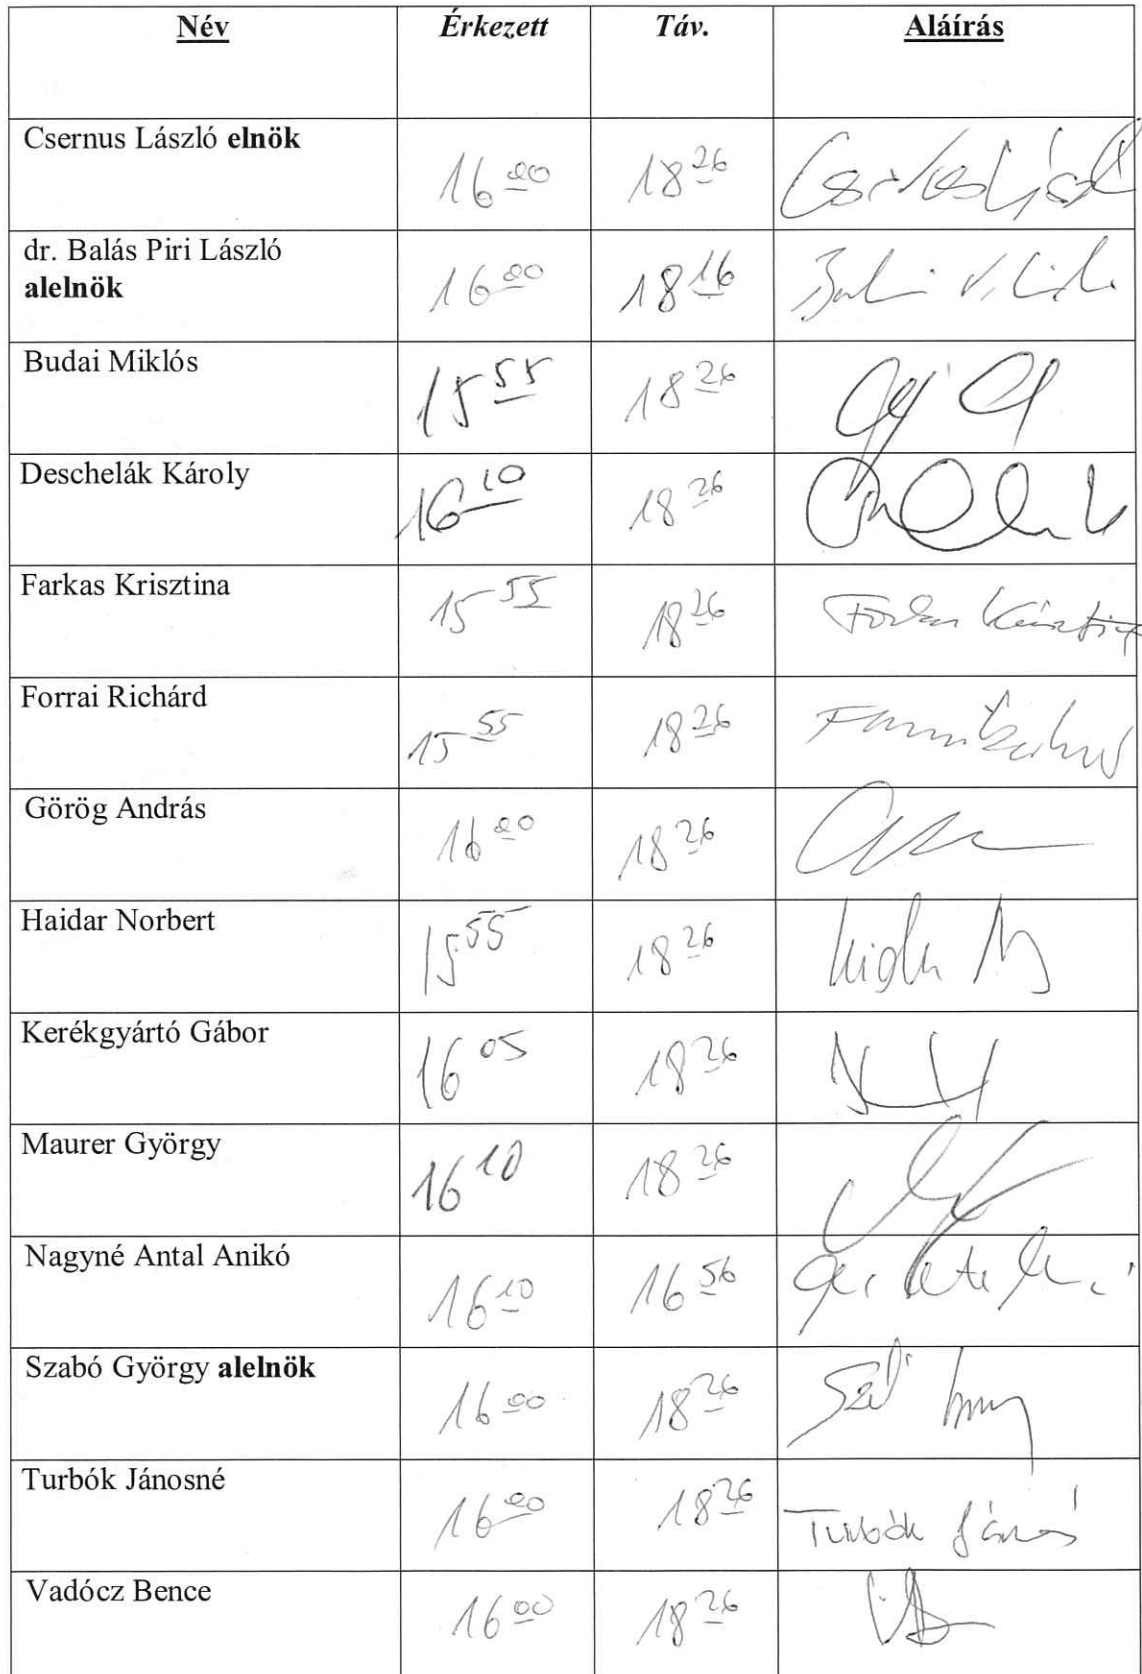 Név Érkezett Táv. Aláírás
Csernus László elnök 16 00 18 26
dr. Balás Piri László
alelnök 16 00 18 16
Budai Miklós 15 55 18 26
Deschelák Károly 16 10 18 26
Farkas Krisztina 15 55 18 26 Farkas Krisztina
Forrai Richárd 15 55 18 26
Görög András 16 00 18 26
Haidar Norbert 15 55 18 26
Kerékgyártó Gábor 16 05 18 26
Maurer György 16 10 18 26
Nagyné Antal Anikó 16 10 16 56
Szabó György alelnök 16 00 18 26
Turbók Jánosné 16 00 18 26 Turbók
Vadócz Bence 16 00 18 26